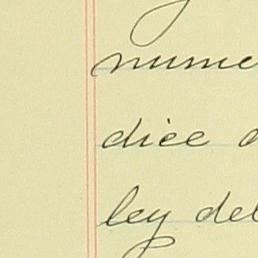 nume
dice
ley del